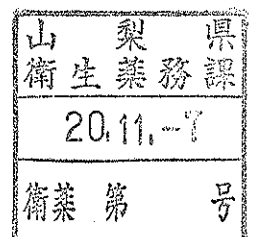 山梨県
衛生薬務課
20.11.-7
衛薬第 号